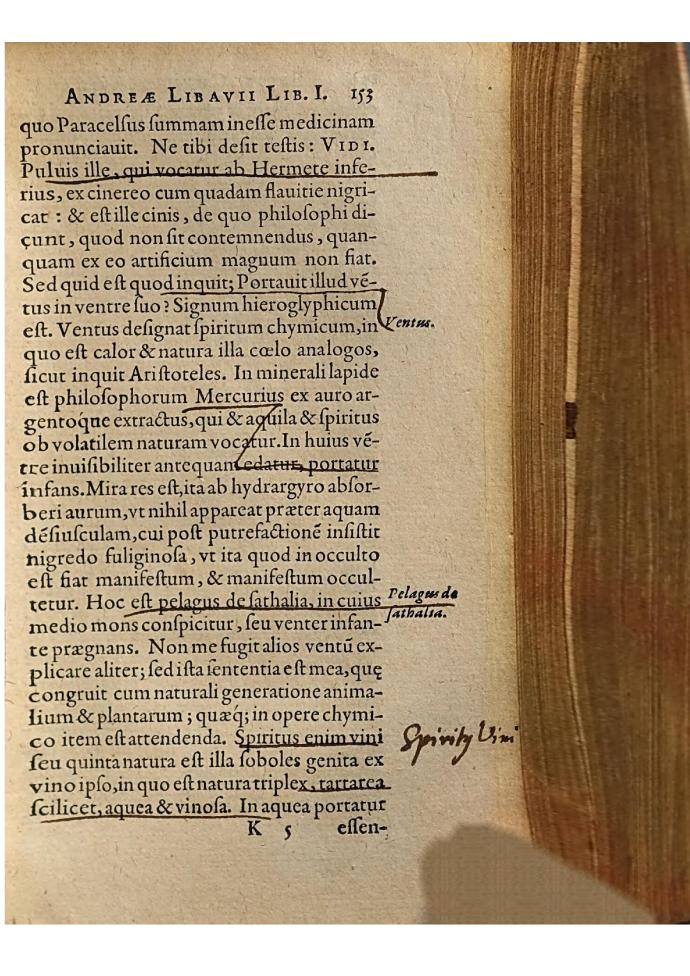 ANDREÆ LIBAVII LIB. I. 153
quo Paracelſus ſummam ineſſe medicinam
pronunciauit. Ne tibi deſit teſtis: VIDI.
Puluis ille, qui vocatur ab Hermete infe-
rius, ex cinereo cum quadam flauitie nigri-
cat: & eſt ille cinis, de quo philoſophi di-
cunt, quod non ſit contemnendus, quan-
quam ex eo artificium magnum non fiat.
Sed quid eſt quod inquit; Portauit illud vē-
tus in ventre ſuo? Signum hieroglyphicum
eſt. Ventus deſignat ſpiritum chymicum, in
Ventus.
quo eſt calor & natura illa cœlo analogos,
ſicut inquit Ariſtoteles. In minerali lapide
eſt philoſophorum Mercurius ex auro ar-
gentoq́ue extractus, qui & aquila & ſpiritus
ob volatilem naturam vocatur. In huius vē-
tre inuiſibiliter antequam edatur, portatur
infans. Mira res eſt, ita ab hydrargyro abſor-
beri aurum, vt nihil appareat præter aquam
dēſiuſculam, cui poſt putrefactionē inſiſtit
nigredo fuliginoſa, vt ita quod in occulto
eſt fiat manifeſtum, & manifeſtum occul-
tetur. Hoc eſt pelagus de ſathalia, in cuius
Pelagus de
ſathalia.
medio mons conſpicitur, ſeu venter infan-
te prægnans. Non me fugit alios ventū ex-
plicare aliter; ſed iſta ſententia eſt mea, quę
congruit cum naturali generatione anima-
lium & plantarum; quæq́; in opere chymi-
co item eſt attendenda. Spiritus enim vini
Spirity Vini
ſeu quinta natura eſt illa ſoboles genita ex
vino ipſo, in quo eſt natura triplex, tartarea
ſcilicet, aquea & vinoſa. In aquea portatur
K 5 eſſen-